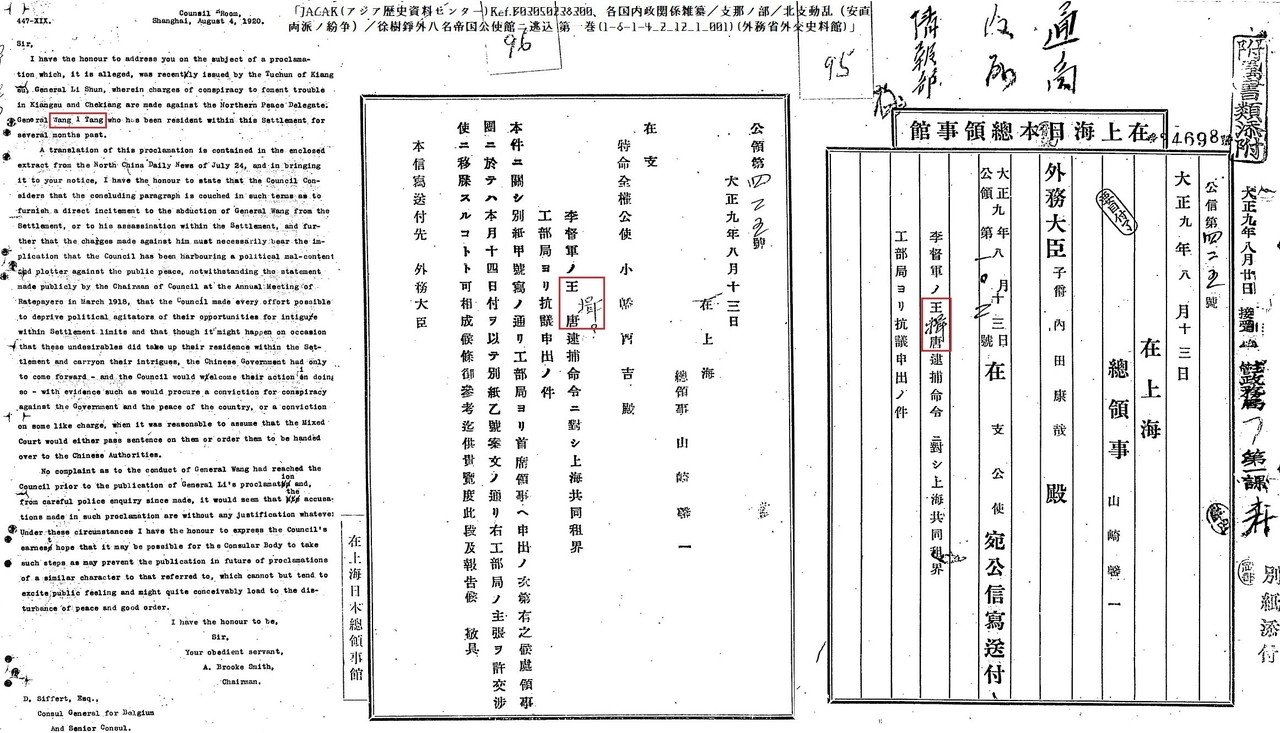 「JACAR(アジア歴史資料センター)Ref.B03050238300、各国内政関係雑纂／支那ノ部／北支動乱(安直
両派ノ紛争)／徐樹錚外八名帝国公使館ニ逃込 第一巻(1-6-1-4_2_12_1_001)(外務省外交史料館)」
Council Room,
447-XIX. Shanghai, August 4, 1920.
Sir,
I have the honour to address you on the subject of a proclama-
tion which, it is alleged, was recently issued by the Tuchun of Kiang
su General Li Shun, wherein charges of conspiracy to foment trouble
in Kiangsu and Chekiang are made against the Northern Peace Delegate.
General Wang I Tang who has been resident within this Settlement for
several months past.
A translation of this proclamation is contained in the enclosed
extract from the North China Daily News of July 24, and in bringing
it to your notice, I have the honour to state that the Council Con-
siders that the concluding paragraph is couched in such terms as to
furnish a direct incitement to the abduction of General Wang from the
Settlement, or to his assassination within the Settlement, and fur-
ther that the charges made against him must necessarily bear the im-
plication that the Council has been harbouring a political mal-content
and plotter against the public peace, notwithstanding the statement
made publicly by the Chairman of Council at the Annual Meeting of
Ratepayers in March 1918, that the Council made every effort possible
to deprive political agitators of their opportunities for intigue
within Settlement limits and that though it might happen on occasion
that these undesirables did take up their residence within the Set-
tlement and carryon their intrigues, the Chinese Government had only
to come forward - and the Council would welcome their action in doing
so - with evidence such as would procure a conviction for conspiracy
against the Government and the peace of the country, or a conviction
on some like charge, when it was reasonable to assume that the Mixed
Court would either pass sentence on them or order them to be handed
over to the Chinese Authorities.
No complaint as to the conduct of General Wang had reached the
Council prior to the publication of General Li's proclamation and,
from careful police enquiry since made, it would seem that the accusa-
tions made in such proclamation are without any justification whatever
Under these circumstances I have the honour to express the Council's
earnest hope that it may be possible for the Consular Body to take
such steps as may prevent the publication in future of proclamations
of a similar character to that referred to, which cannot but tend to
excite public feeling and might quite conceivably load to the dis-
turbance of peace and good order.
I have the honour to be,
Sir,
Your obedient servant,
A. Brooke Smith,
Chairman.
D. Siffert, Esq.,
Consul General for Belgium
And Senior Consul.
96
公領第四二五號
大正九年八月十三日
在上海
總領事 山崎馨一
在支
特命全權公使 小幡酉吉殿
李督軍ノ王揖唐逮捕命令ニ對シ上海共同租界
工部局ヨリ抗議申出ノ件
本件ニ關シ別紙甲號寫ノ通リ工部局ヨリ首席領事ヘ申出ノ次第有之候處領事
團ニ於テハ本月十四日付ヲ以テ別紙乙號案文ノ通リ右工部局ノ主張ヲ許交渉
使ニ移牒スルコトト可相成候條御參考迄供貴覽度此段及報告候 敬具
本信寫送付先 外務大臣
在上海日本總領事館
95
通商
情報部
附屬書類添附
在上海日本總領事館
24698
大正九年八月廿日 接受
政務 第一課
別紙添付
公信第四二五號
大正九年八月十三日
在上海
總領事 山崎馨一
外務大臣 子爵 內田康哉殿
大正九年八月十三日
公領第 號 在支公使宛公信寫送付
李督軍ノ王揖唐逮捕命令ニ對シ上海共同租界
工部局ヨリ抗議申出ノ件